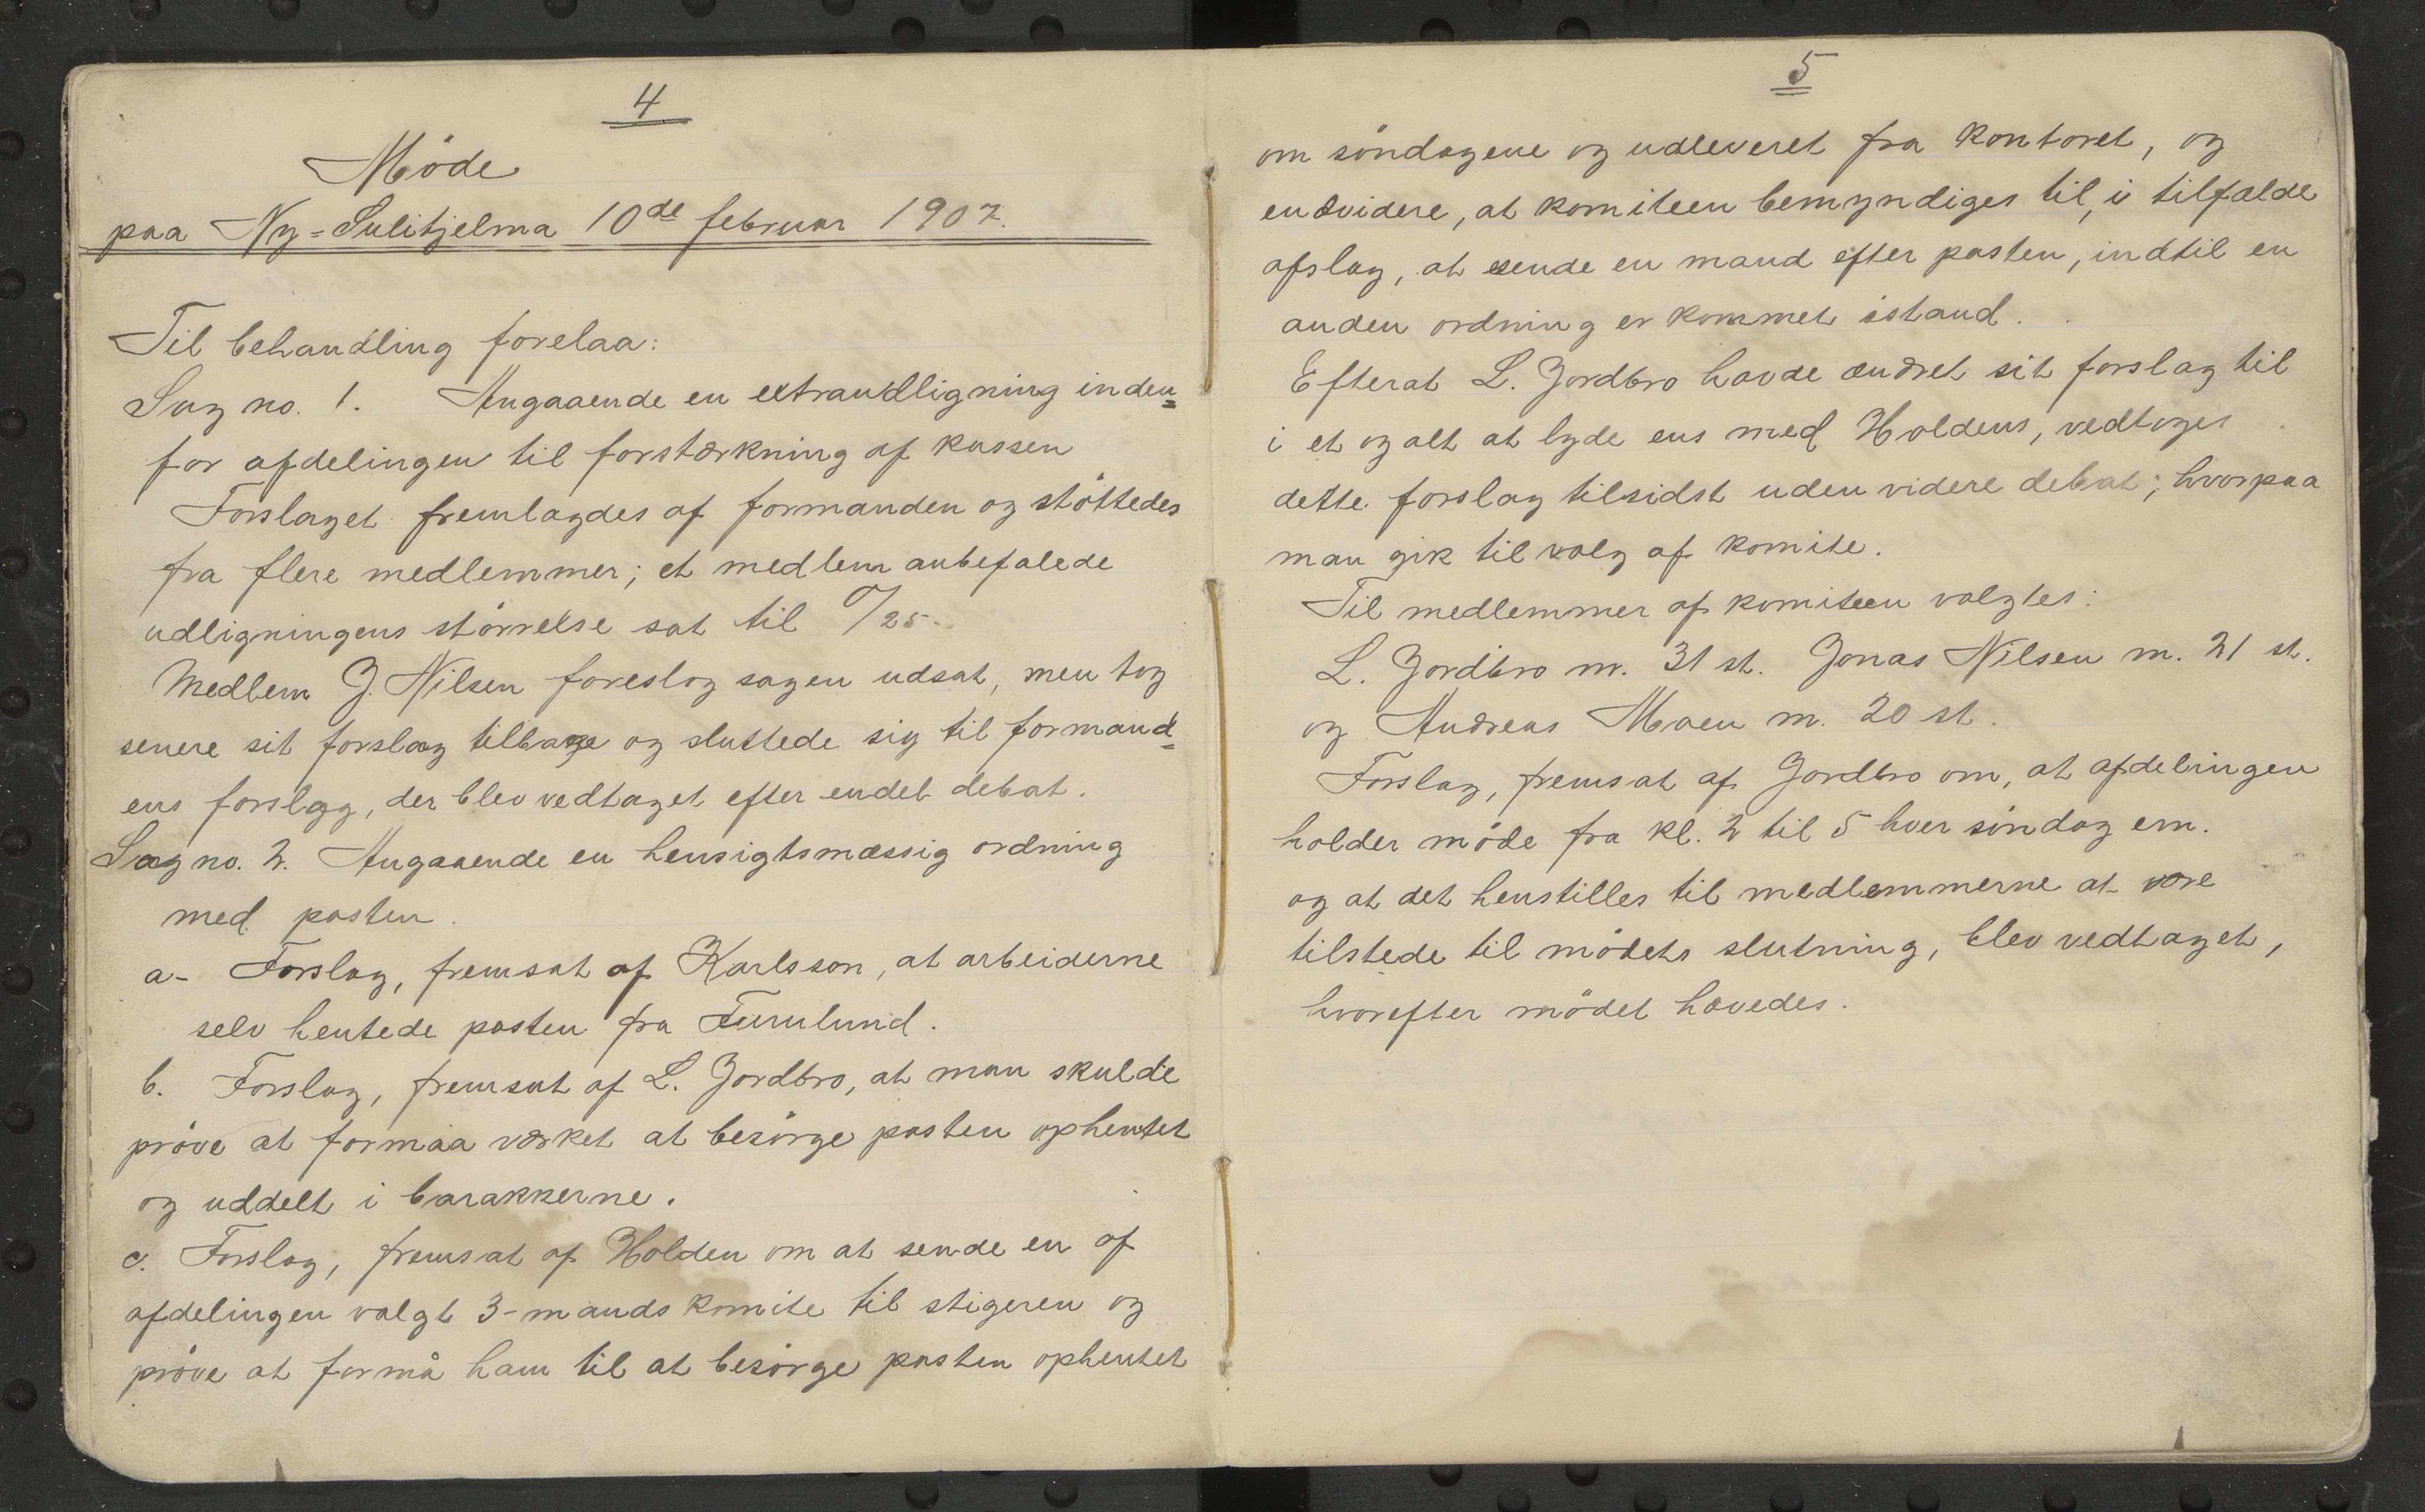 4
Möde
paa Ny-Sulitjelma 10de februar 1907.
Til behandling forelaa:
Sag no. 1. Angaaende en extraudligning inden=
for afdelingen til forstærkning af kassen
Forslaget fremlagdes af formanden og støttedes
fra flere medlemmer; et medlem anbefalede
udligningens störrelse sat til 0/25.
Medlem J. Nilsen foreslog sagen udsat, men tog
senere sit forslag tilbage og sluttede sig til formand=
ens forslag, der blev vedtaget efter endel debat.
Sag no. 2. Angaaende en hensigtsmæssig ordning
med posten.
a- Forslag, fremsat af Karlsson, at arbeiderne
selv hentede posten fra Furulund.
b. Forslag, fremsat af L. Jordbro, at man skulde
pröve at formaa værket at besörge posten ophentet
og uddelt i barakkerne.
c. Forslag, fremsat af Holden om at sende en af
afdelingen valgt 3-mands komite til stigeren og
pröve at formå ham til at besörge posten ophentet
5
om söndagene og udleveret fra kontoret, og
endvidere, at komiteen bemyndiges til, i tilfælde
afslag, at sende en mand efter posten, indtil en
anden ordning er kommet istand.
Efterat L. Jordbro havde ændret sit forslag til
i et og alt at lyde ens med Holdens, vedtoges
dette forslag tilsidst uden videre debat; hvorpaa
man gik til valg af komite.
Til medlemmer af komiteen valgtes:
L. Jordbro m. 31 st. Jonas Nilsen m. 21 st.
og Andreas Moen m. 20 st.
Forslag, fremsat af Jordbro om, at afdelingen
holder möde fra kl. 2 til 5 hver söndag em.
og at det henstilles til medlemmerne at være
tilstede til mödets slutning, blev vedtaget,
hvorefter mödet hævedes.